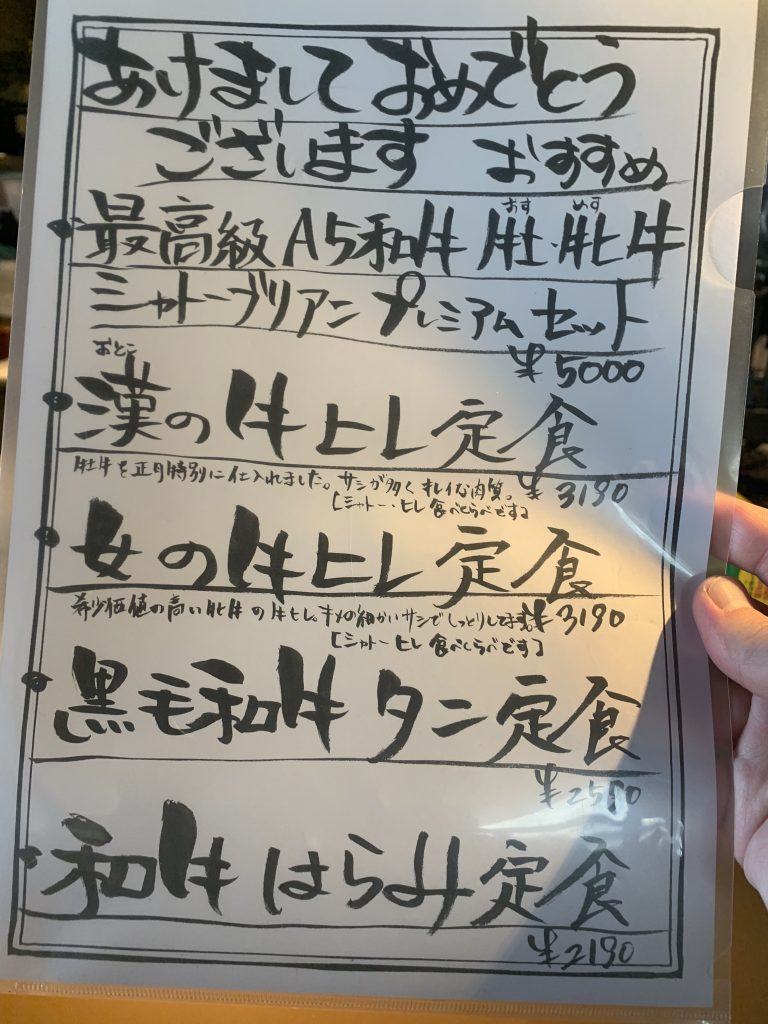 あけましておめでとう
ございます おすすめ
おす めす
最高級A5和牛 牡・牝牛
シャトーブリアンプレミアムセット
¥5000
おとこ
漢の牛ヒレ定食
牡牛を正月特別に仕入れました。サシが多くキレイな肉質。¥3190
[シャトー・ヒレ食べくらべです]
女の牛ヒレ定食
希少価値の高い牝牛の牛ヒレ。キメの細かいサシでしっとりしてます。¥3190
[シャトーヒレ食べくらべです]
黒毛和牛タン定食
¥2590
和牛はらみ定食
¥2190